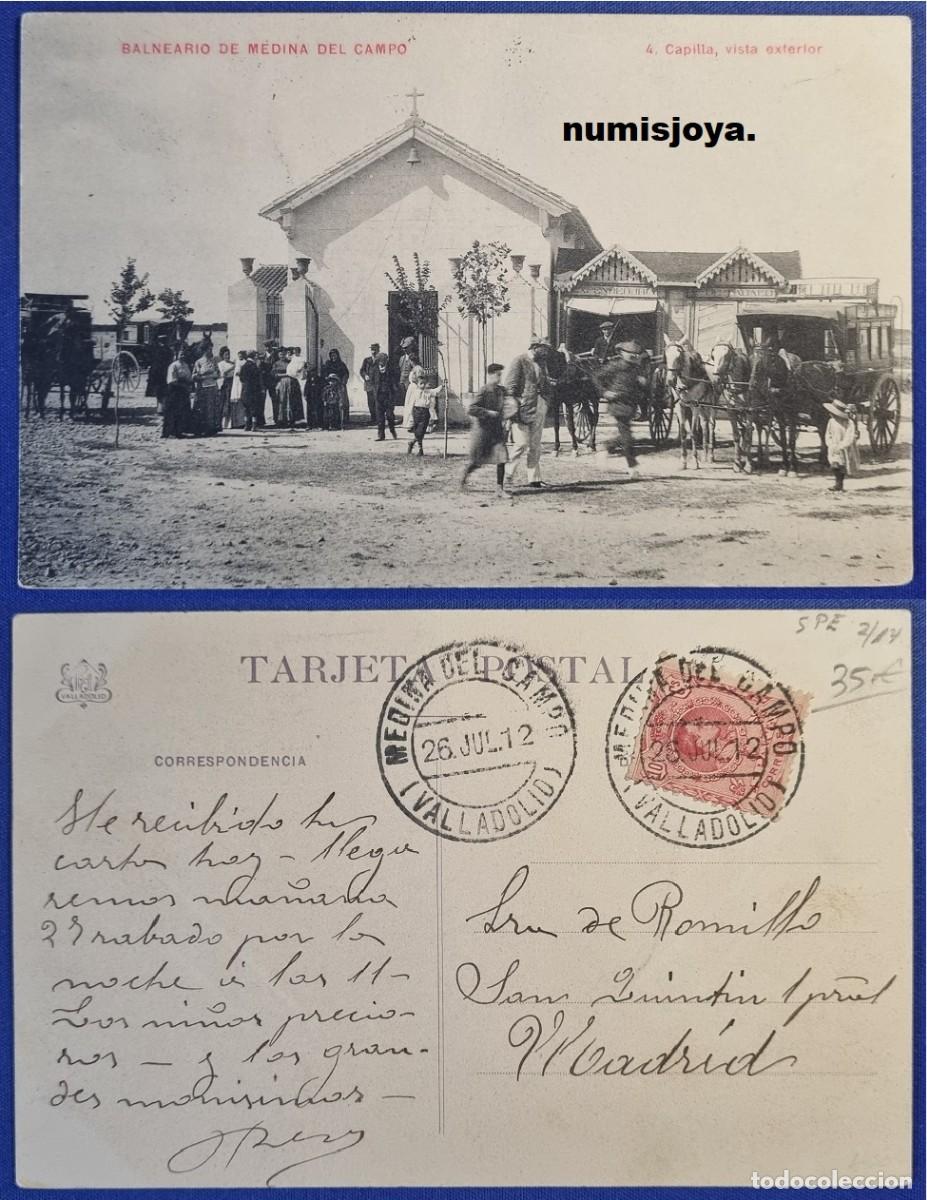 BALNEARIO DE MEDINA DEL CAMPO
4. Capilla, vista exterior
numisjoya.
SPE 2/14
35€
TARJETA POSTAL
VALLADOLID
MEDINA DEL CAMPO
26.JUL.12
(VALLADOLID)
MEDINA DEL CAMPO
26 JUL 12
(VALLADOLID)
CORRESPONDENCIA
He recibido tu
carta hoy – llega
remos mañana
27 sabado por la
noche á las 11–
Los niños precio-
sos – y los gran-
des monisimos –
Sra de Romillo
San Quintin 1 pral
Madrid
todocoleccion